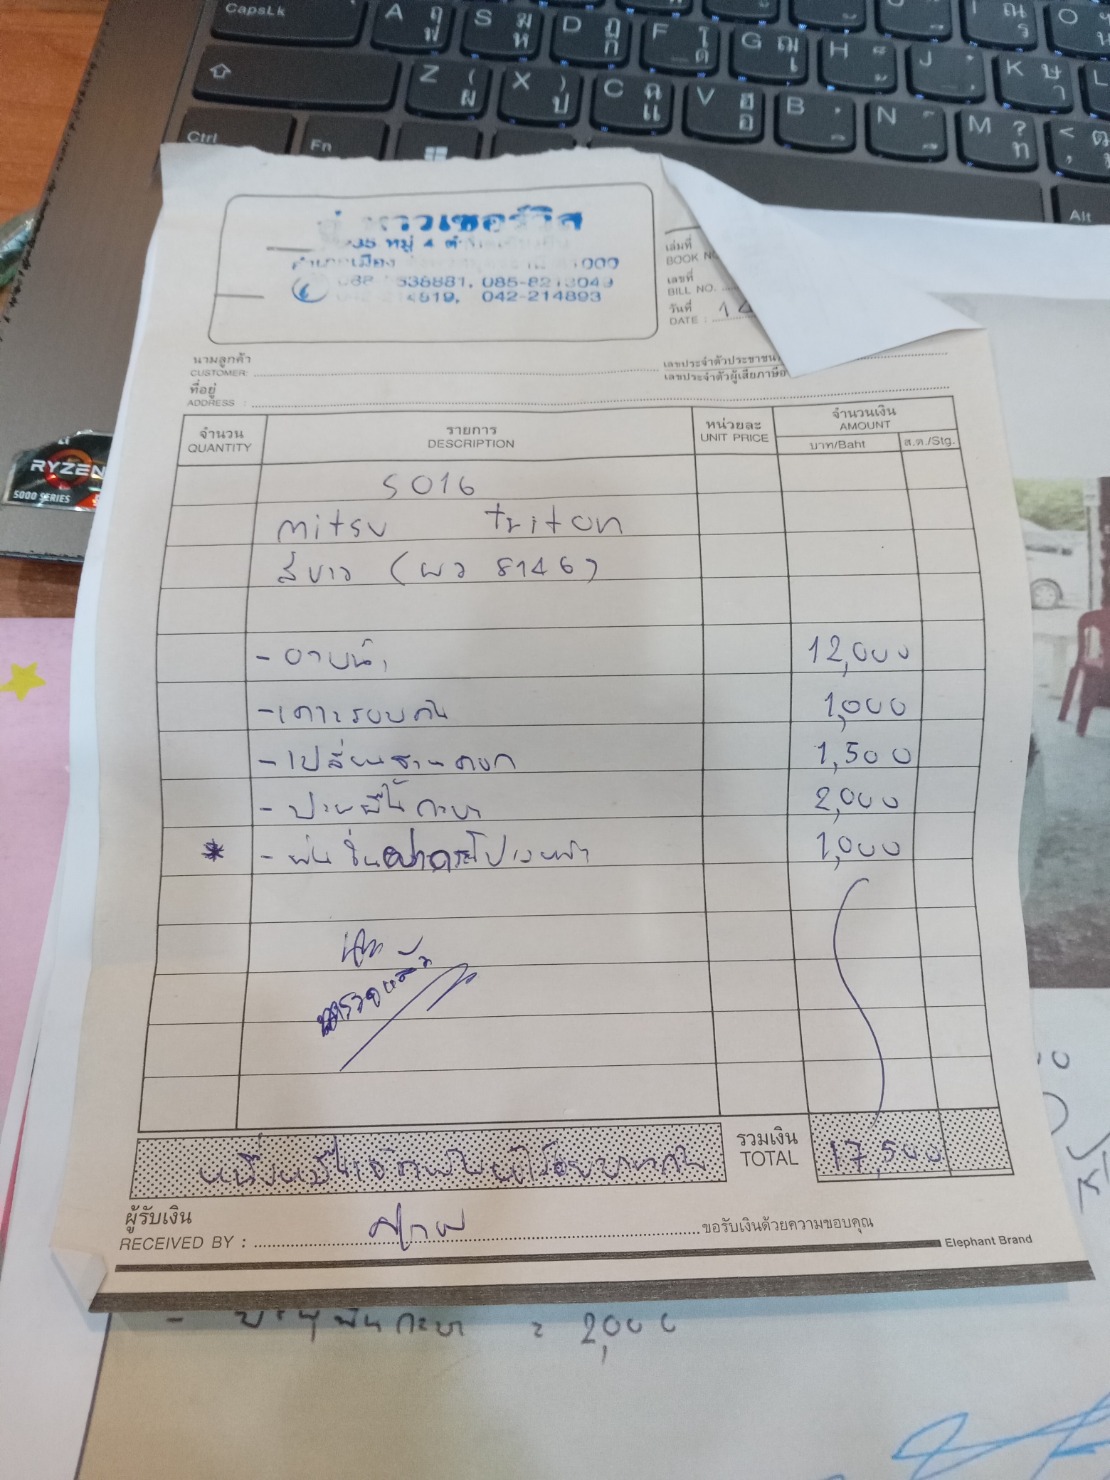 CapsLk A S D F G H J K L
Z X C V B N M
Ctrl Fn Alt
RYZEN
5000 SERIES
หมู่ 4
042-214893
เล่มที่
BOOK
เลขที่
BILL NO.
วันที่
DATE :
นามลูกค้า
CUSTOMER:
เลขประจำตัวประชาชน
เลขประจำตัวผู้เสียภาษีอ
ที่อยู่
ADDRESS :
จำนวน รายการ หน่วยละ จำนวนเงิน
QUANTITY DESCRIPTION UNIT PRICE AMOUNT
บาท/Baht ส.ต./Stg.
5016
mitsu triton
สีขาว (ผว 8146)
- อาบน้ำ 12,000
- เคาะรอบคัน 1,000
- เปลี่ยน 1,500
- ปะผุพื้นกะบะ 2,000
* - พ่น 1,000
ตรวจแล้ว
รวมเงิน
TOTAL 17,500
ผู้รับเงิน
RECEIVED BY : ขอรับเงินด้วยความขอบคุณ
Elephant Brand
- ปะผุพื้นกะบะ = 2,000